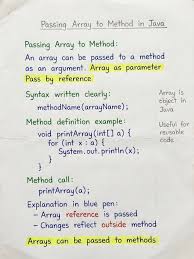 Passing Array to Method in Java
Passing Array to Method:
An array can be passed to a method
as an argument. Array as parameter
Pass by reference
Syntax written clearly:
methodName(arrayName);
Array is
object in
Java
Method definition example:
void printArray(int[] a) {
for (int x : a) {
System.out.println(x);
}
}
Useful for
reusable
code
Method call:
printArray(a);
Explanation in blue pen:
– Array reference is passed
– Changes reflect outside method
Arrays can be passed to methods